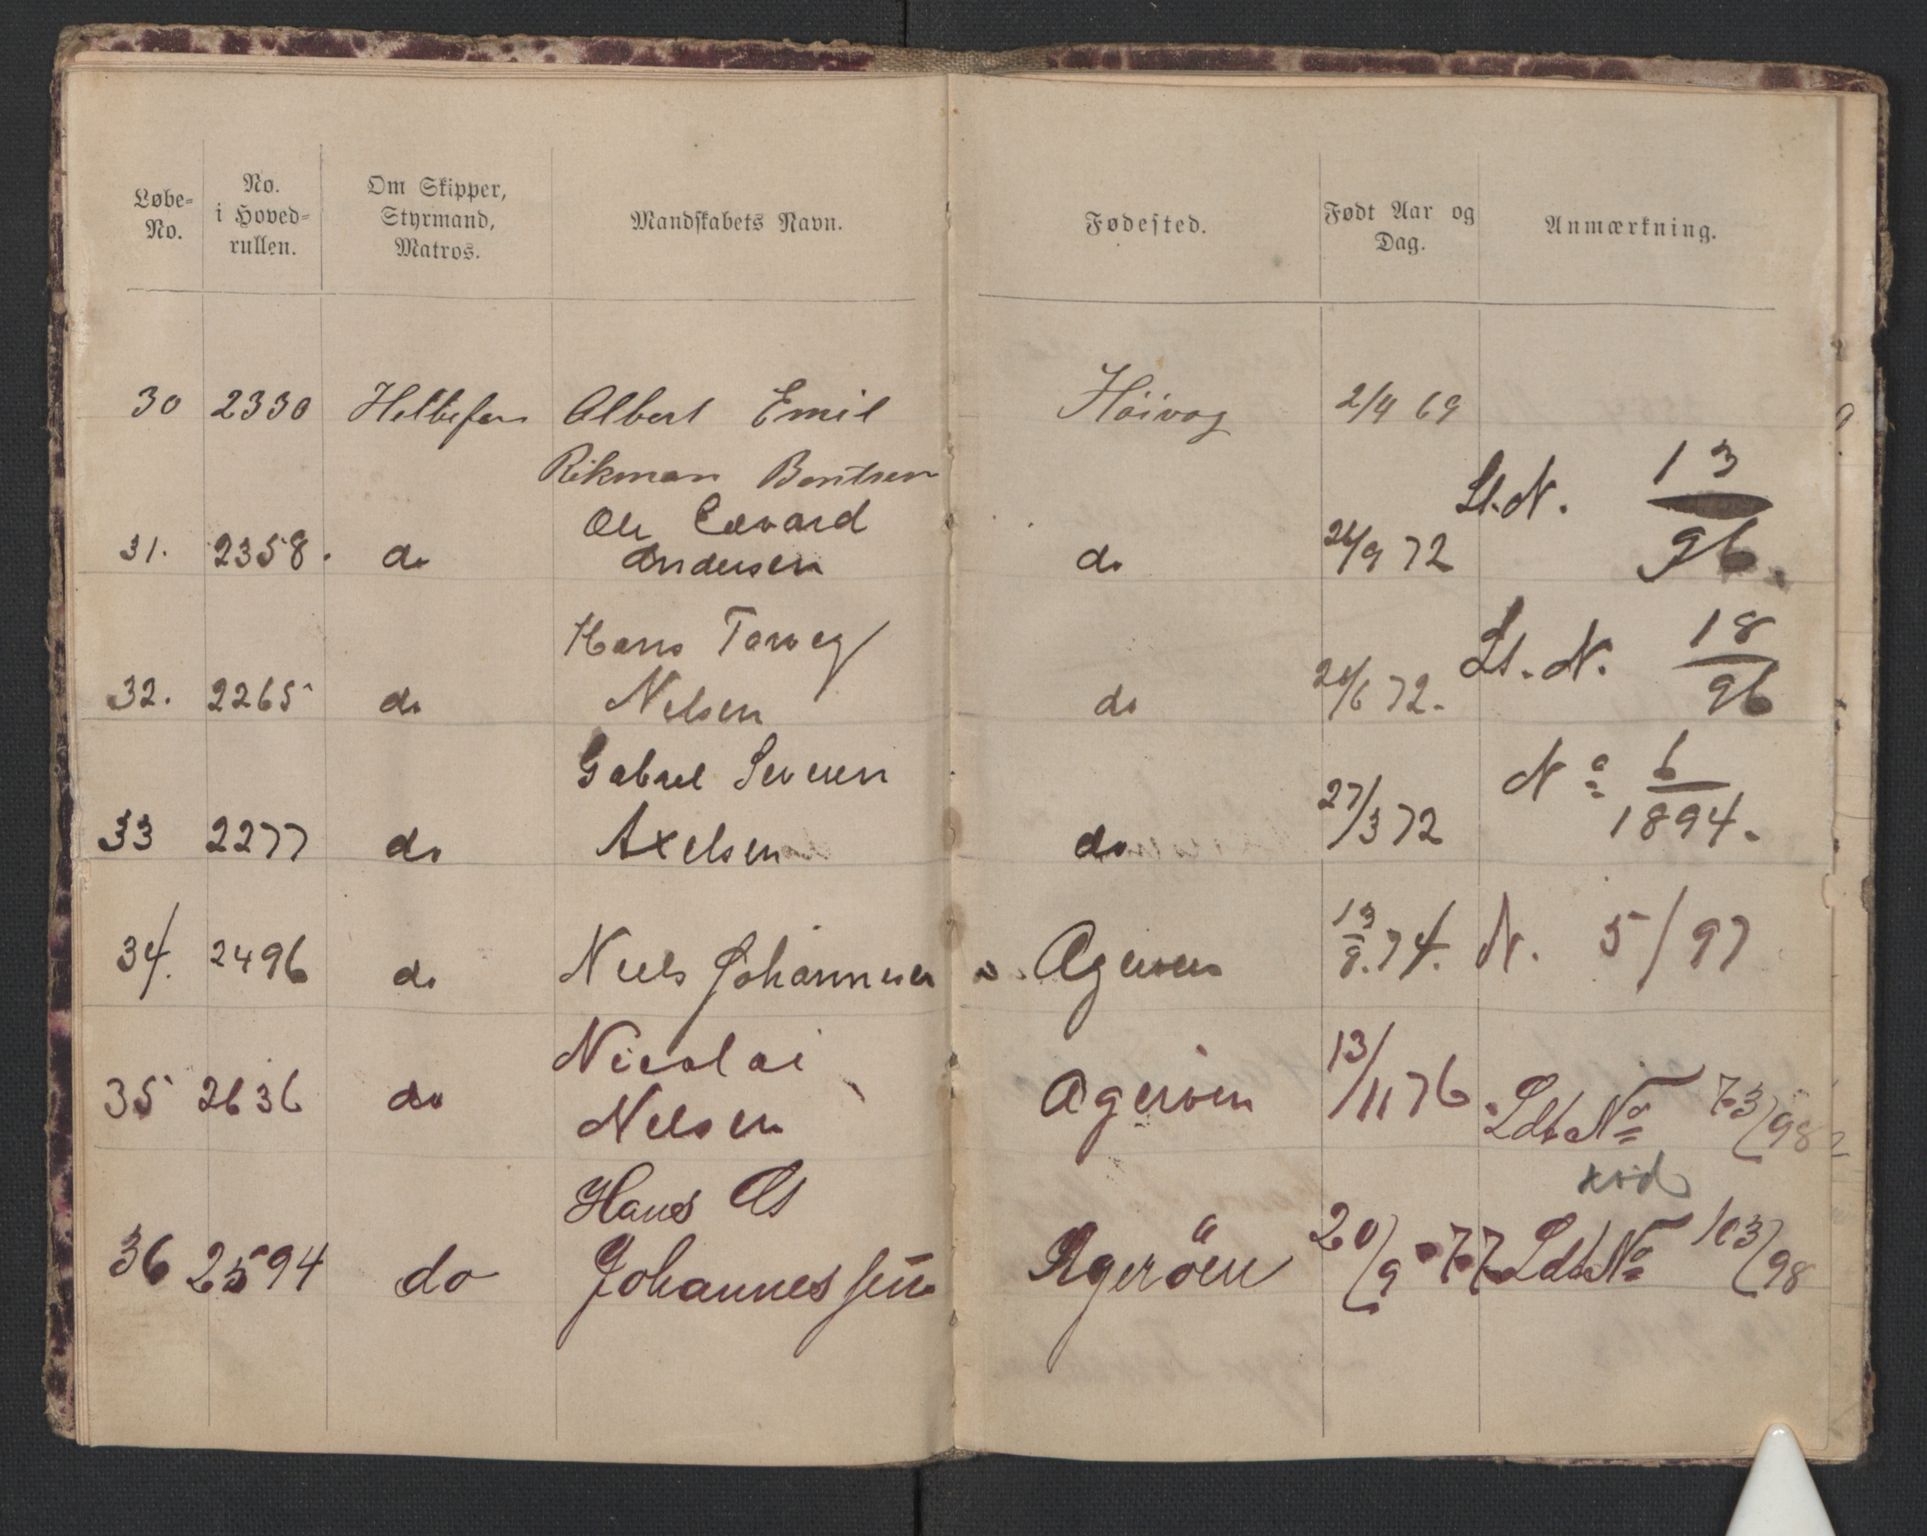 Løbe-No. No. i Hoved-rullen. Om Skipper, Styrmand, Matros. Mandskabets Navn. Fødested. Født Aar og Dag. Anmærkning.
30 2330 Albert Emil Höivog 2/4 69
Rikman Bentsen Lt. N. 13/96.
31. 2358. do Ole Edvard Andersen do 26/9 72
Hans Tarveg Lt. N. 18/96
32. 2265 do Nelsen do 72.
Gabrel Severen No 6/1894.
33 2277 do Axelsen do 27/3 72
34. 2496 do Niels Johannesen Ageroen 13/8. 74. N. 5/97
Nicolai
35 2636 do Nelsen Ageröen 13/11 76. Ldt No 73/98
Hans
36 2594 do Johannessen Ageröen 20/9 77 Ldt No 103/98